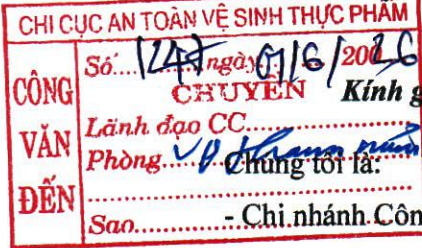 CHI CỤC AN TOÀN VỆ SINH THỰC PHẨM
CÔNG VĂN ĐẾN
Số 1247 ngày 01/6/2026
CHUYỂN
Kính g
Lãnh đạo CC
Phòng
Chúng tôi là:
Sao
- Chi nhánh Côn